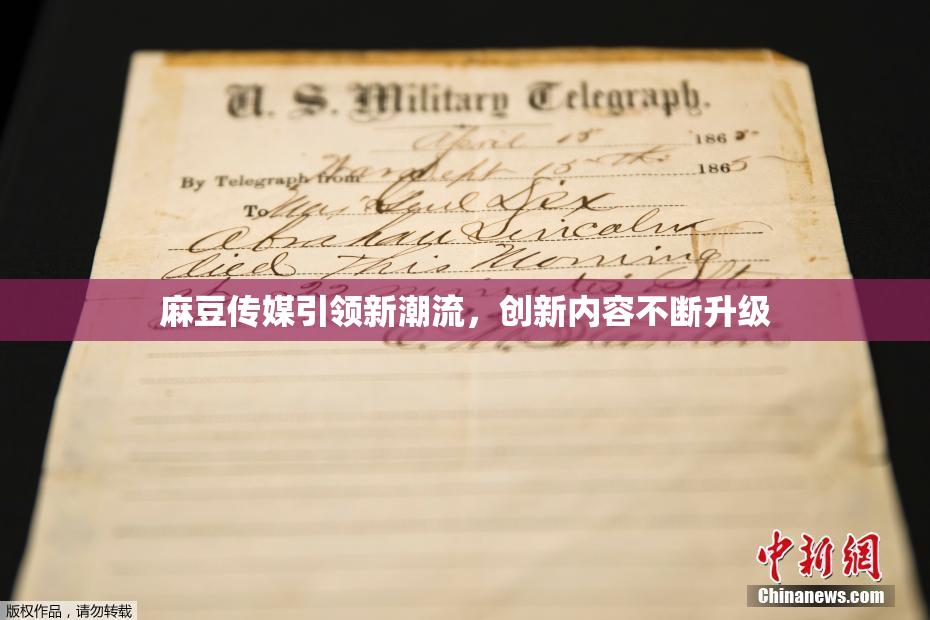 U. S. Military Telegraph.
April 15 1865
By Telegraph from War Dept 15th 1865
To Maj Genl Dix
Abraham Lincoln
died This Morning
at 22 minutes after
麻豆传媒引领新潮流，创新内容不断升级
E. M. Stanton
中新网
Chinanews.com
版权作品，请勿转载